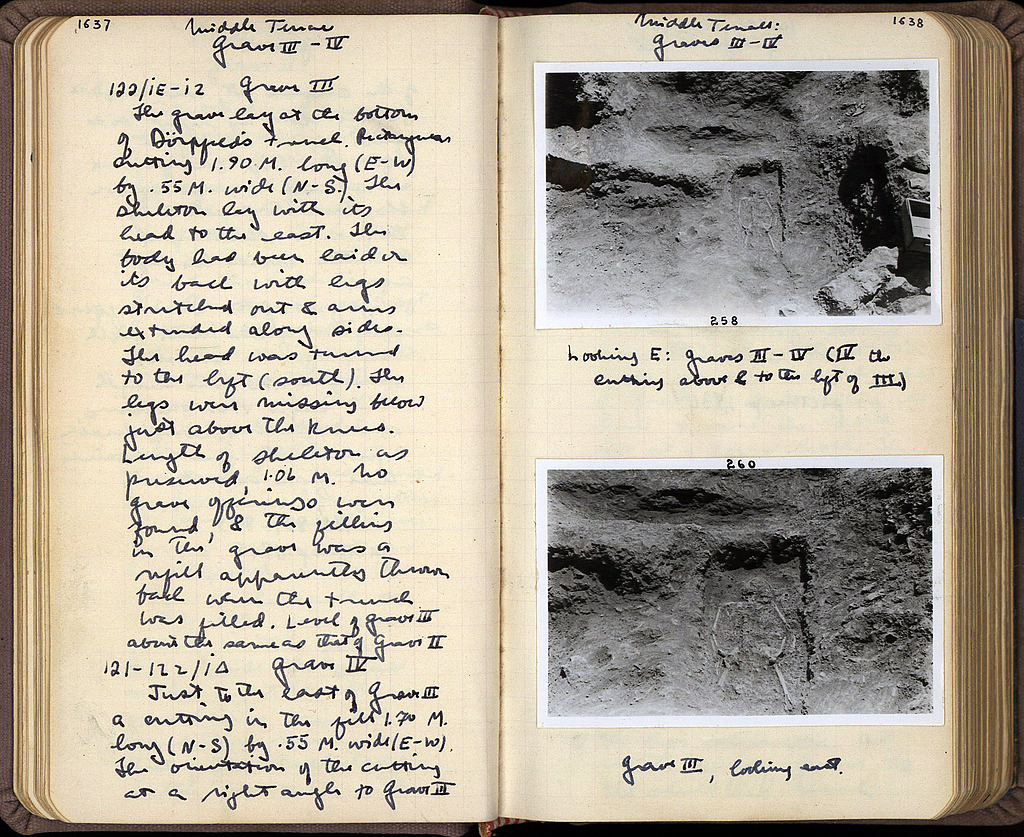 1637
Middle Terrace
Grave III - IV
122/IE-12 Grave III
The grave lay at the bottom
of Dörpfeld's trench. Rectangular
cutting 1.90 M. long (E-W)
by .55 M. wide (N-S). The
skeleton lay with its
head to the east. The
body had been laid on
its back with legs
stretched out & arms
extended along sides.
The head was turned
to the left (south). The
legs were missing below
just above the knees.
Length of skeleton as
preserved, 1.06 M. No
grave offerings were
found, & the filling
in the grave was a
refill apparently thrown
back when the trench
was filled. Level of grave III
about the same as that of Grave II
121-122/1Δ Grave IV
Just to the east of Grave III
a cutting in the fill 1.70 M.
long (N-S) by .55 M. wide (E-W).
The orientation of the cutting
at a right angle to Grave III
1638
Middle Terrace:
Graves III - IV
258
Looking E: graves III - IV (IV the
cutting above & to the left of III)
260
Grave III, looking east.